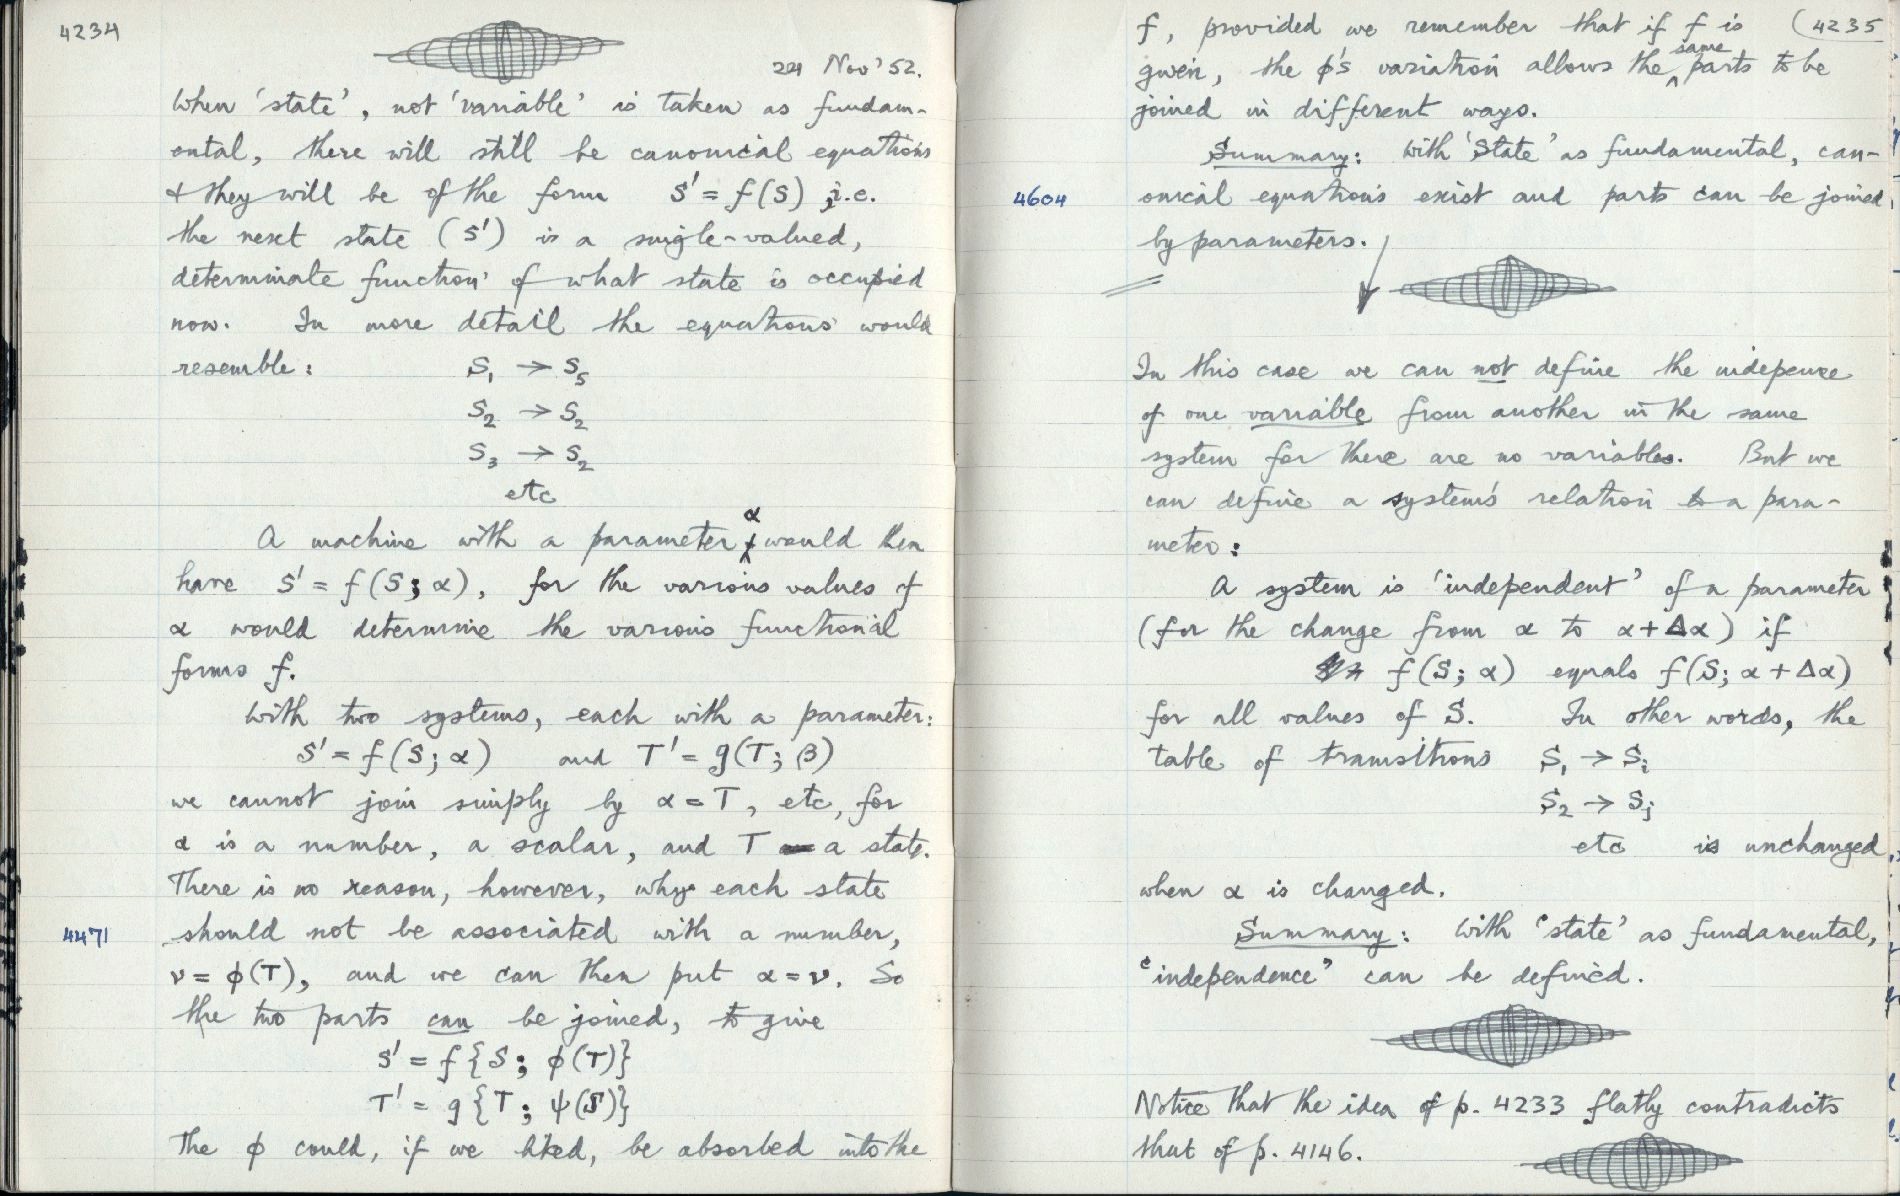 4234
24 Nov '52.
When 'state', not 'variable' is taken as fundam-
ental, there will still be canonical equations
& they will be of the form S' = f(S) ; i.e.
the next state (S') is a single-valued,
determinate function of what state is occupied
now. In more detail the equations would
resemble: S₁ → S₅
S₂ → S₂
S₃ → S₂
etc
α
A machine with a parameter ‸ would then
have S' = f(S; α), for the various values of
α would determine the various functional
forms f.
With two systems, each with a parameter:
S' = f(S; α) and T' = g(T; β)
we cannot join simply by α = T, etc, for
α is a number, a scalar, and T a state.
There is no reason, however, why each state
4471 should not be associated with a number,
ν = φ(T), and we can then put α = ν. So
the two parts can be joined, to give
S' = f{S; φ(T)}
T' = g{T; ψ(S)}
The φ could, if we liked, be absorbed into the
f, provided we remember that if f is (4235
same
given, the φ's variation allows the ‸ parts to be
joined in different ways.
Summary: With 'State' as fundamental, can-
4604 onical equations exist and parts can be joined
by parameters.
In this case we can not define the indepence
of one variable from another in the same
system for there are no variables. But we
can define a system's relation to a para-
meter:
A system is 'independent' of a parameter
(for the change from α to α+Δα) if
f(S; α) equals f(S; α+Δα)
for all values of S. In other words, the
table of transitions S₁ → Sᵢ
S₂ → Sⱼ
etc is unchanged
when α is changed.
Summary: With 'state' as fundamental,
'independence' can be defined.
Notice that the idea of p. 4233 flatly contradicts
that of p. 4146.